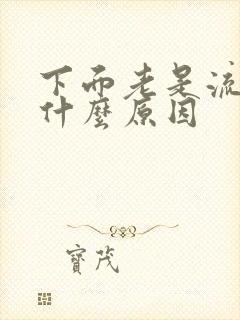 下面老是流
什麼原因
寶茂